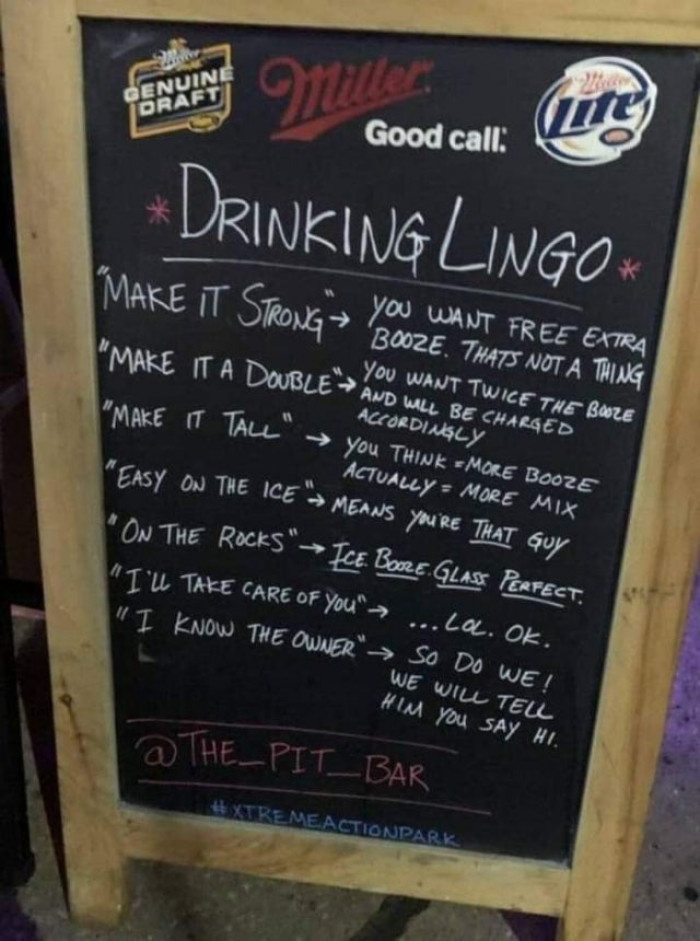 Miller
GENUINE
DRAFT
Miller
Good call.
Miller
Lite
* DRINKING LINGO *
"MAKE IT STRONG" → YOU WANT FREE EXTRA
BOOZE. THATS NOT A THING
"MAKE IT A DOUBLE" → YOU WANT TWICE THE BOOZE
AND WILL BE CHARGED
ACCORDINGLY
"MAKE IT TALL" → YOU THINK = MORE BOOZE
ACTUALLY = MORE MIX
"EASY ON THE ICE" → MEANS YOU'RE THAT GUY
"ON THE ROCKS" → ICE. BOOZE. GLASS PERFECT.
"I'LL TAKE CARE OF YOU" → ...LOL. OK.
"I KNOW THE OWNER" → SO DO WE!
WE WILL TELL
HIM YOU SAY HI.
@THE_PIT_BAR
#XTREMEACTIONPARK